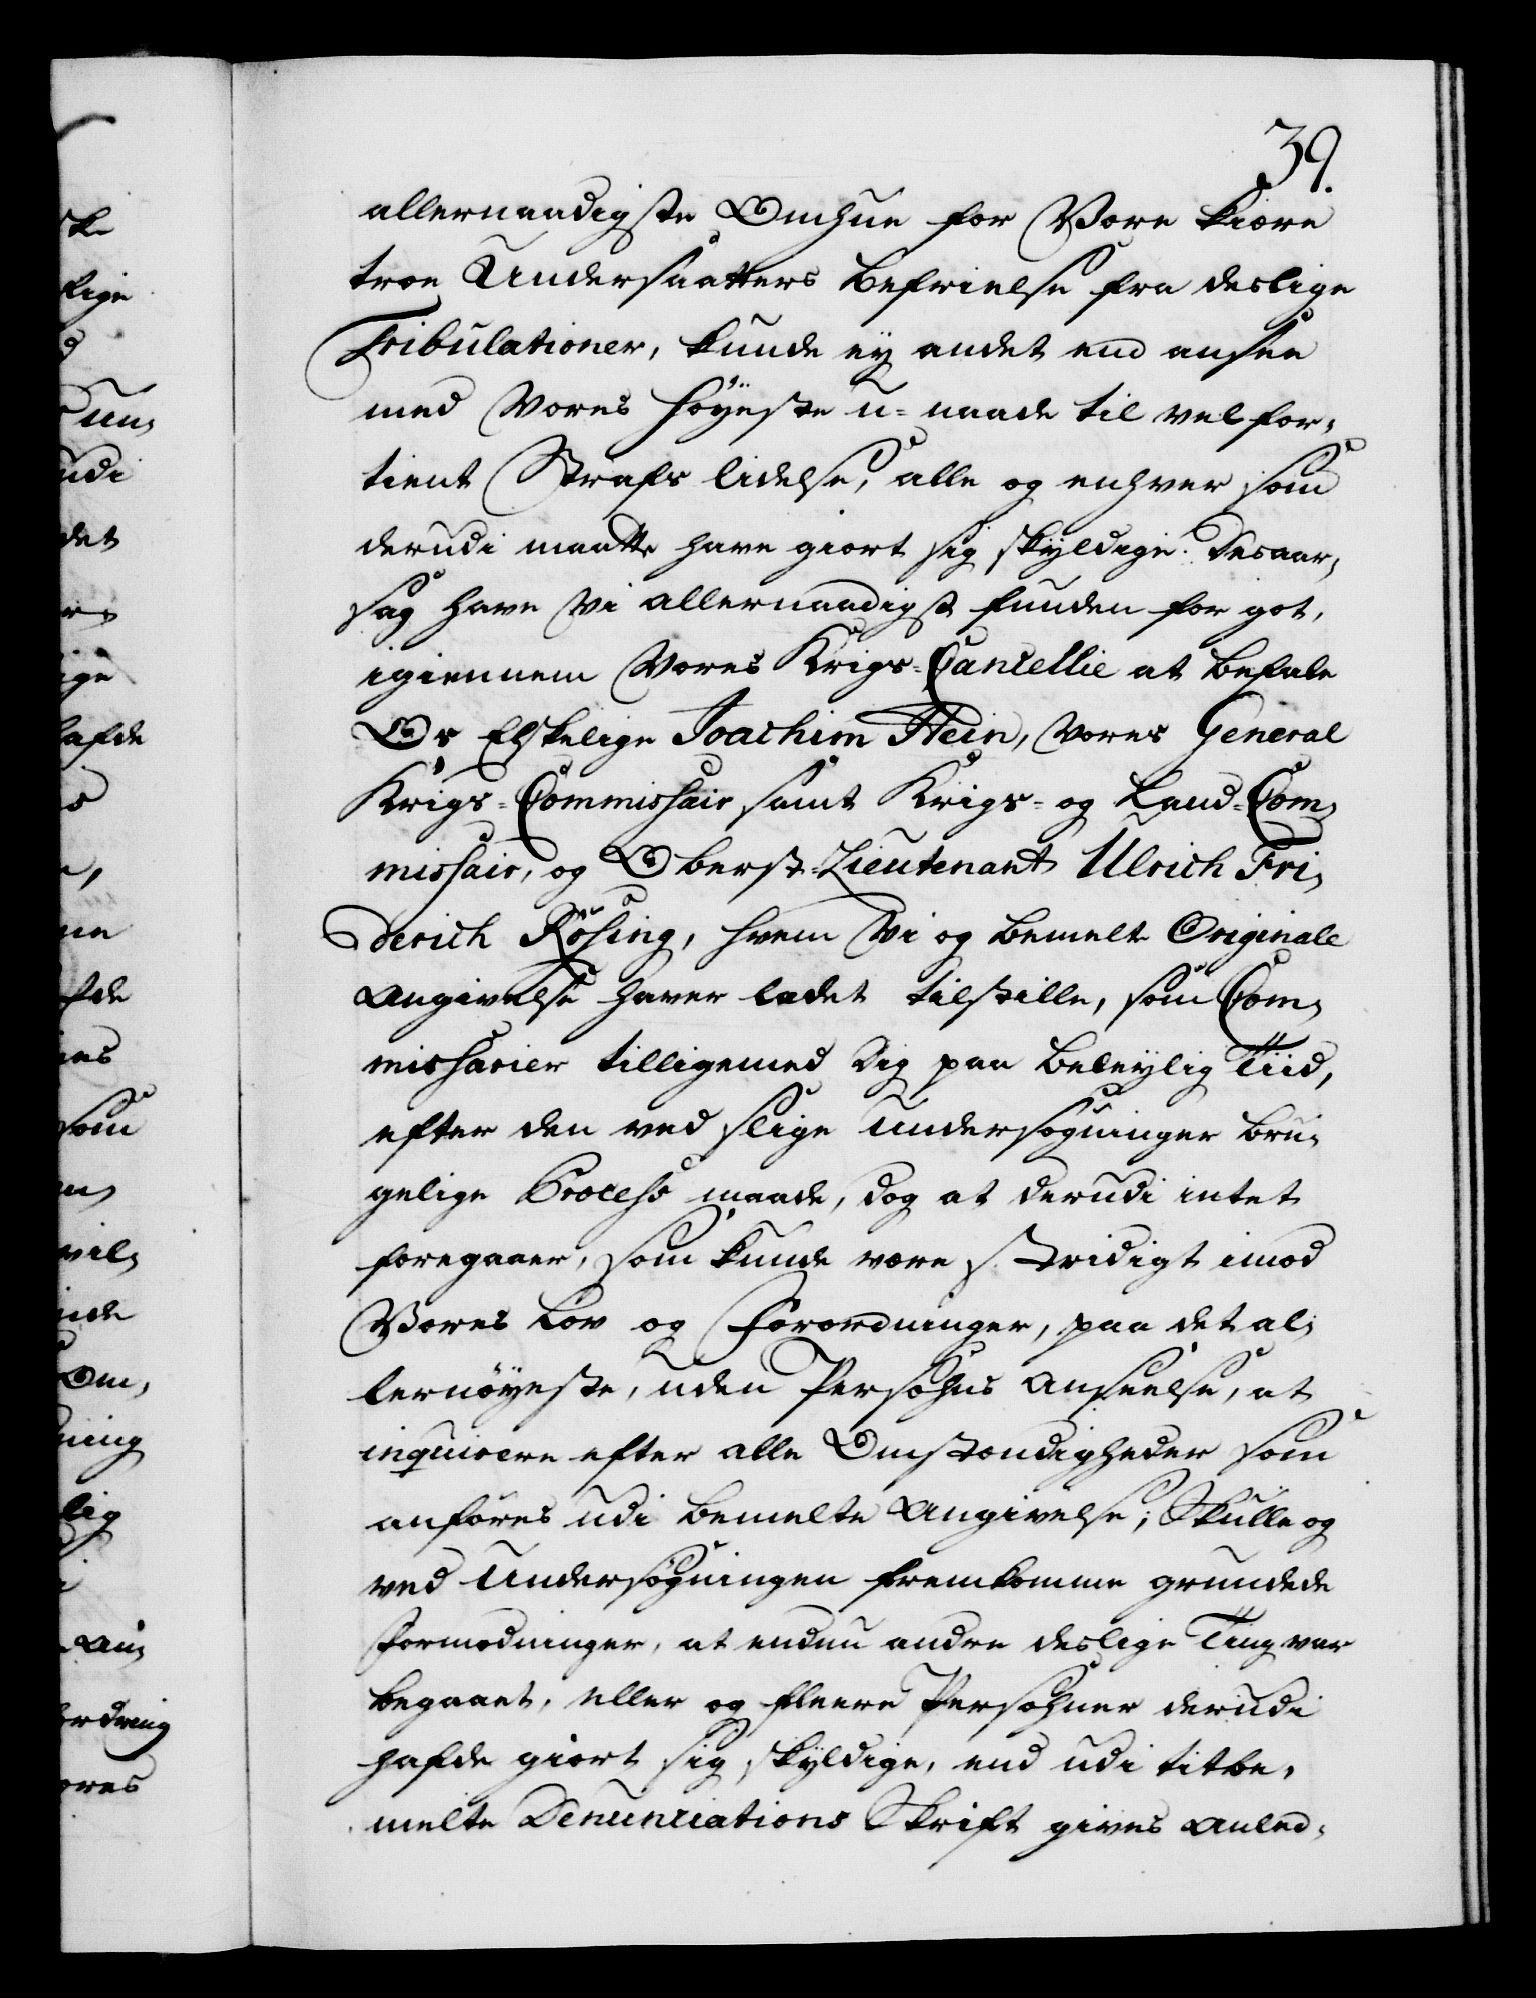 39.
allernaadigste Omhue for Vore kiære
troe Undersaatters befrielse fra deslige
Tribulationer, kunde ey andet end ansee
med Vores høyeste u-naade til vel for-
tient Straffs lidelse, alle og enhver som
derudi maatte have giort sig skyldige. Desaar-
sag have Vi allernaadigst funden for got,
igiennem Vores Krigs-Cancellie at befale
Os Elskelige Joachim Hein, Vores General
Krigs-Commissair samt Krigs- og Land-Com-
missair, og Oberst-Lieutenant Ulrich Fri-
derich Rösing, hvem Vi og bemelte Originale
Angivelse haver ladet tilstille, som Com-
missarier tilligemed Dig paa beleylig Tiid,
efter den ved slige Undersøgninger bru-
gelige Process maade, dog at derudi intet
foregaaer, som kunde være stridigt imod
Vores Lov og Forordninger, paa det al-
lernøyeste, uden Persohns Anseelse, at
inquirere efter alle Omstændigheder som
anføres udi bemelte Angivelse; Skulle og
ved Undersøgningen fremkomme grundede
Formodninger, at endnu andre deslige Ting var
begaaet, eller og fleere Persohner derudi
hafde giort sig skyldige, end udi titbe-
melte Denunciations Skrift gives Anled-